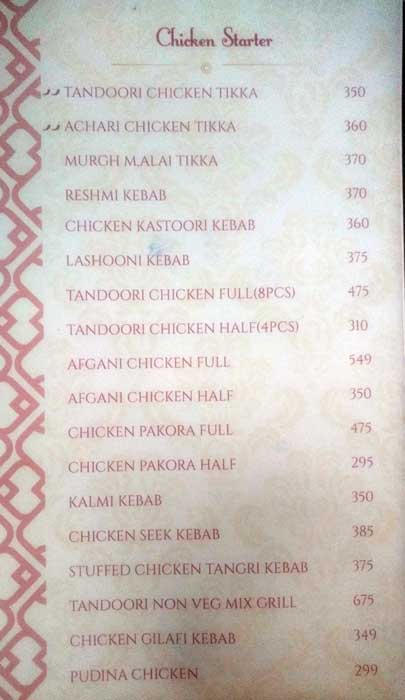 Chicken Starter
TANDOORI CHICKEN TIKKA 350
ACHARI CHICKEN TIKKA 360
MURGH M,ALAI TIKKA 370
RESHMI KEBAB 370
CHICKEN KASTOORI KEBAB 360
LASHOONI KEBAB 375
TANDOORI CHICKEN FULL(8PCS) 475
TANDOORI CHICKEN HALF(4PCS) 310
AFGANI CHICKEN FULL 549
AFGANI CHICKEN HALF 350
CHICKEN PAKORA FULL 475
CHICKEN PAKORA HALF 295
KALMI KEBAB 350
CHICKEN SEEK KEBAB 385
STUFFED CHICKEN TANGRI KEBAB 375
TANDOORI NON VEG MIX GRILL 675
CHICKEN GILAFI KEBAB 349
PUDINA CHICKEN 299